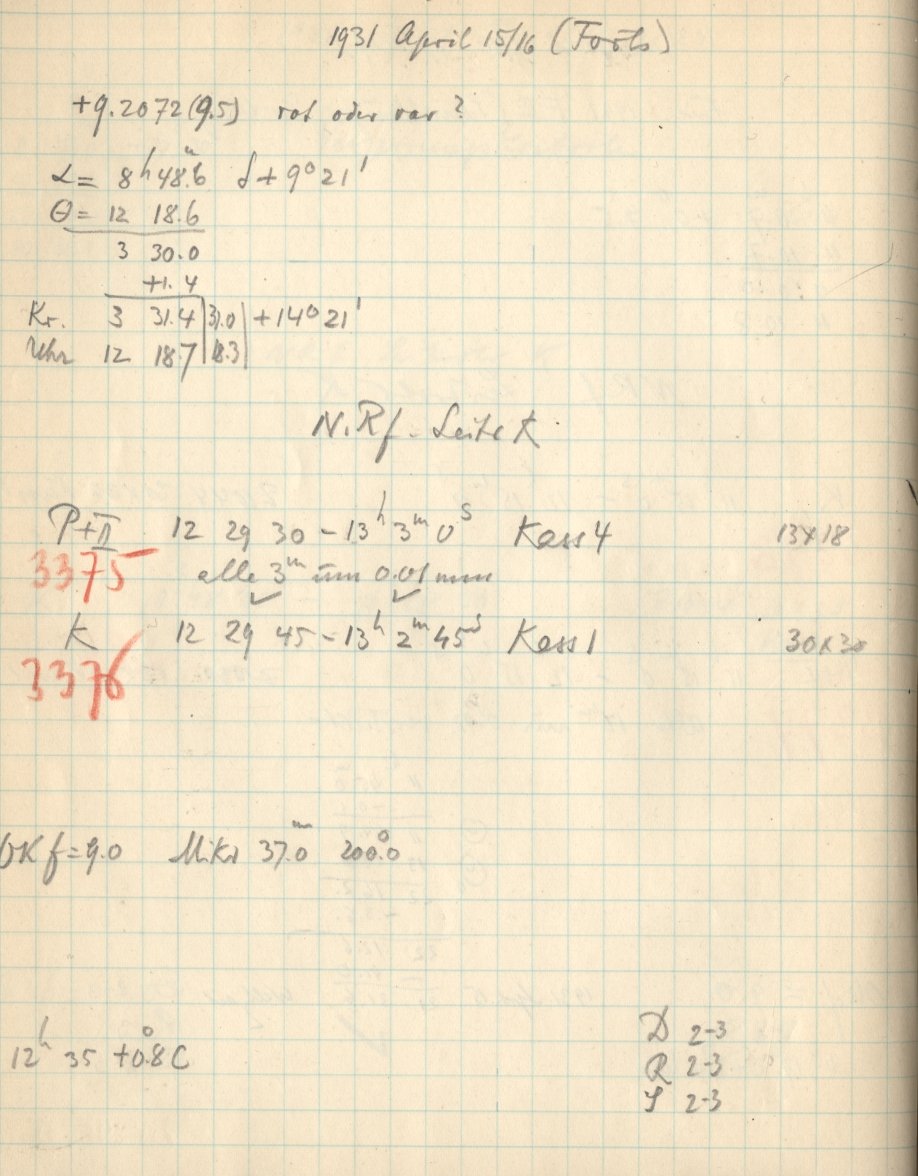 1931 April 15/16 (Forts)
+9.2072 (9.5) rot oder var?
α = 8h 48.6m δ + 9° 21'
Θ = 12 18.6
3 30.0
+1.4
Kr. 3 31.4 | 31.0 | + 14° 21'
Uhr 12 18.7 | 18.3 |
N.Rf. Seite K
P+II 12 29 30 – 13h 3m 0s Kass 4 13x18
3375 alle 3m um 0.01 mm
K 12 29 45 – 13h 2m 45s Kass 1 30x30
3376
f = 9.0 Mikr 37.0 200.0
12h 35 +0.8° C
D 2-3
R 2-3
S 2-3